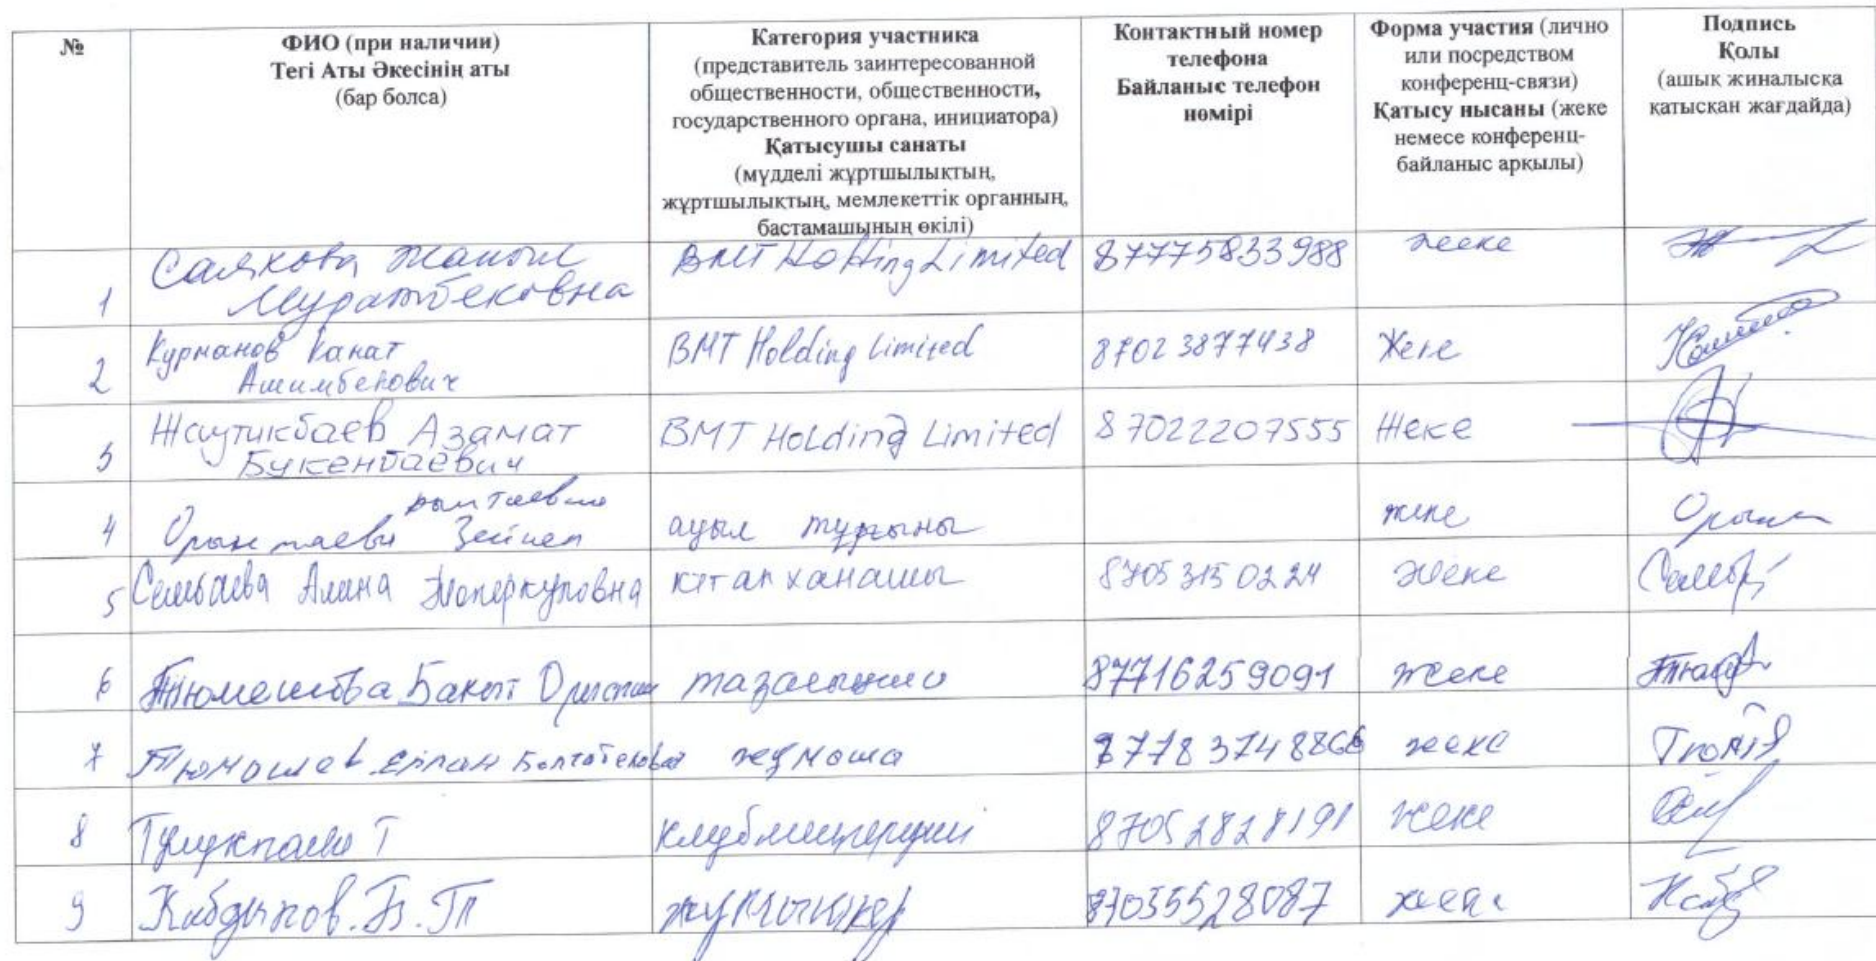 №
ФИО (при наличии)
Тегі Аты Әкесінің аты
(бар болса)
Категория участника
(представитель заинтересованной
общественности, общественности,
государственного органа, инициатора)
Қатысушы санаты
(мүдделі жұртшылықтың,
жұртшылықтың, мемлекеттік органның,
бастамашының өкілі)
Контактный номер
телефона
Байланыс телефон
нөмірі
Форма участия (лично
или посредством
конференц-связи)
Қатысу нысаны (жеке
немесе конференц-
байланыс арқылы)
Подпись
Қолы
(ашық жиналысқа
қатысқан жағдайда)
1
Саякова Жаныл
Муратбековна
BMT Holding Limited
87775833988
жеке
2
Курманов Канат
Ашимбекович
BMT Holding Limited
87023877438
Жеке
3
Жаутикбаев Азамат
Букенбаевич
BMT Holding Limited
87022207555
Жеке
4
Зейнеп
ауыл тұрғыны
жеке
5
Сембаева Алина
кітапханашы
87053150224
жеке
6
Бакыт
87716259091
жеке
7
Ерлан
87783748866
жеке
8
Т
87052828191
жеке
9
87035528087
жеке